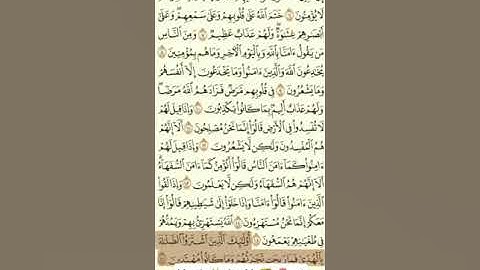 لَا يُؤْمِنُونَ ٦ خَتَمَ ٱللَّهُ عَلَىٰ قُلُوبِهِمْ وَعَلَىٰ سَمْعِهِمْ ۖ وَعَلَىٰ
أَبْصَٰرِهِمْ غِشَٰوَةٌ ۖ وَلَهُمْ عَذَابٌ عَظِيمٌ ٧ وَمِنَ ٱلنَّاسِ
مَن يَقُولُ ءَامَنَّا بِٱللَّهِ وَبِٱلْيَوْمِ ٱلْءَاخِرِ وَمَا هُم بِمُؤْمِنِينَ ٨
يُخَٰدِعُونَ ٱللَّهَ وَٱلَّذِينَ ءَامَنُوا۟ وَمَا يَخْدَعُونَ إِلَّآ أَنفُسَهُمْ
وَمَا يَشْعُرُونَ ٩ فِى قُلُوبِهِم مَّرَضٌ فَزَادَهُمُ ٱللَّهُ مَرَضًا ۖ
وَلَهُمْ عَذَابٌ أَلِيمٌۢ بِمَا كَانُوا۟ يَكْذِبُونَ ١٠ وَإِذَا قِيلَ لَهُمْ
لَا تُفْسِدُوا۟ فِى ٱلْأَرْضِ قَالُوٓا۟ إِنَّمَا نَحْنُ مُصْلِحُونَ ١١ أَلَآ إِنَّهُمْ
هُمُ ٱلْمُفْسِدُونَ وَلَٰكِن لَّا يَشْعُرُونَ ١٢ وَإِذَا قِيلَ لَهُمْ
ءَامِنُوا۟ كَمَآ ءَامَنَ ٱلنَّاسُ قَالُوٓا۟ أَنُؤْمِنُ كَمَآ ءَامَنَ ٱلسُّفَهَآءُ ۗ
أَلَآ إِنَّهُمْ هُمُ ٱلسُّفَهَآءُ وَلَٰكِن لَّا يَعْلَمُونَ ١٣ وَإِذَا لَقُوا۟
ٱلَّذِينَ ءَامَنُوا۟ قَالُوٓا۟ ءَامَنَّا وَإِذَا خَلَوْا۟ إِلَىٰ شَيَٰطِينِهِمْ قَالُوٓا۟ إِنَّا
مَعَكُمْ إِنَّمَا نَحْنُ مُسْتَهْزِءُونَ ١٤ ٱللَّهُ يَسْتَهْزِئُ بِهِمْ وَيَمُدُّهُمْ
فِى طُغْيَٰنِهِمْ يَعْمَهُونَ ١٥ أُو۟لَٰٓئِكَ ٱلَّذِينَ ٱشْتَرَوُا۟ ٱلضَّلَٰلَةَ
بِٱلْهُدَىٰ فَمَا رَبِحَت تِّجَٰرَتُهُمْ وَمَا كَانُوا۟ مُهْتَدِينَ ١٦